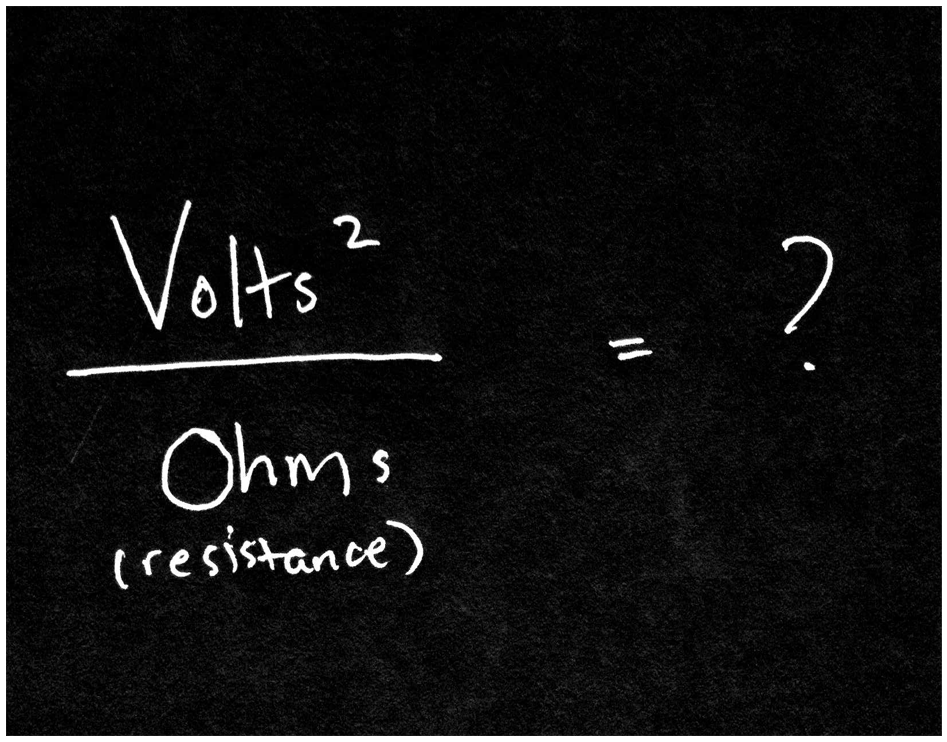 Volts²
Ohms
(resistance)
= ?